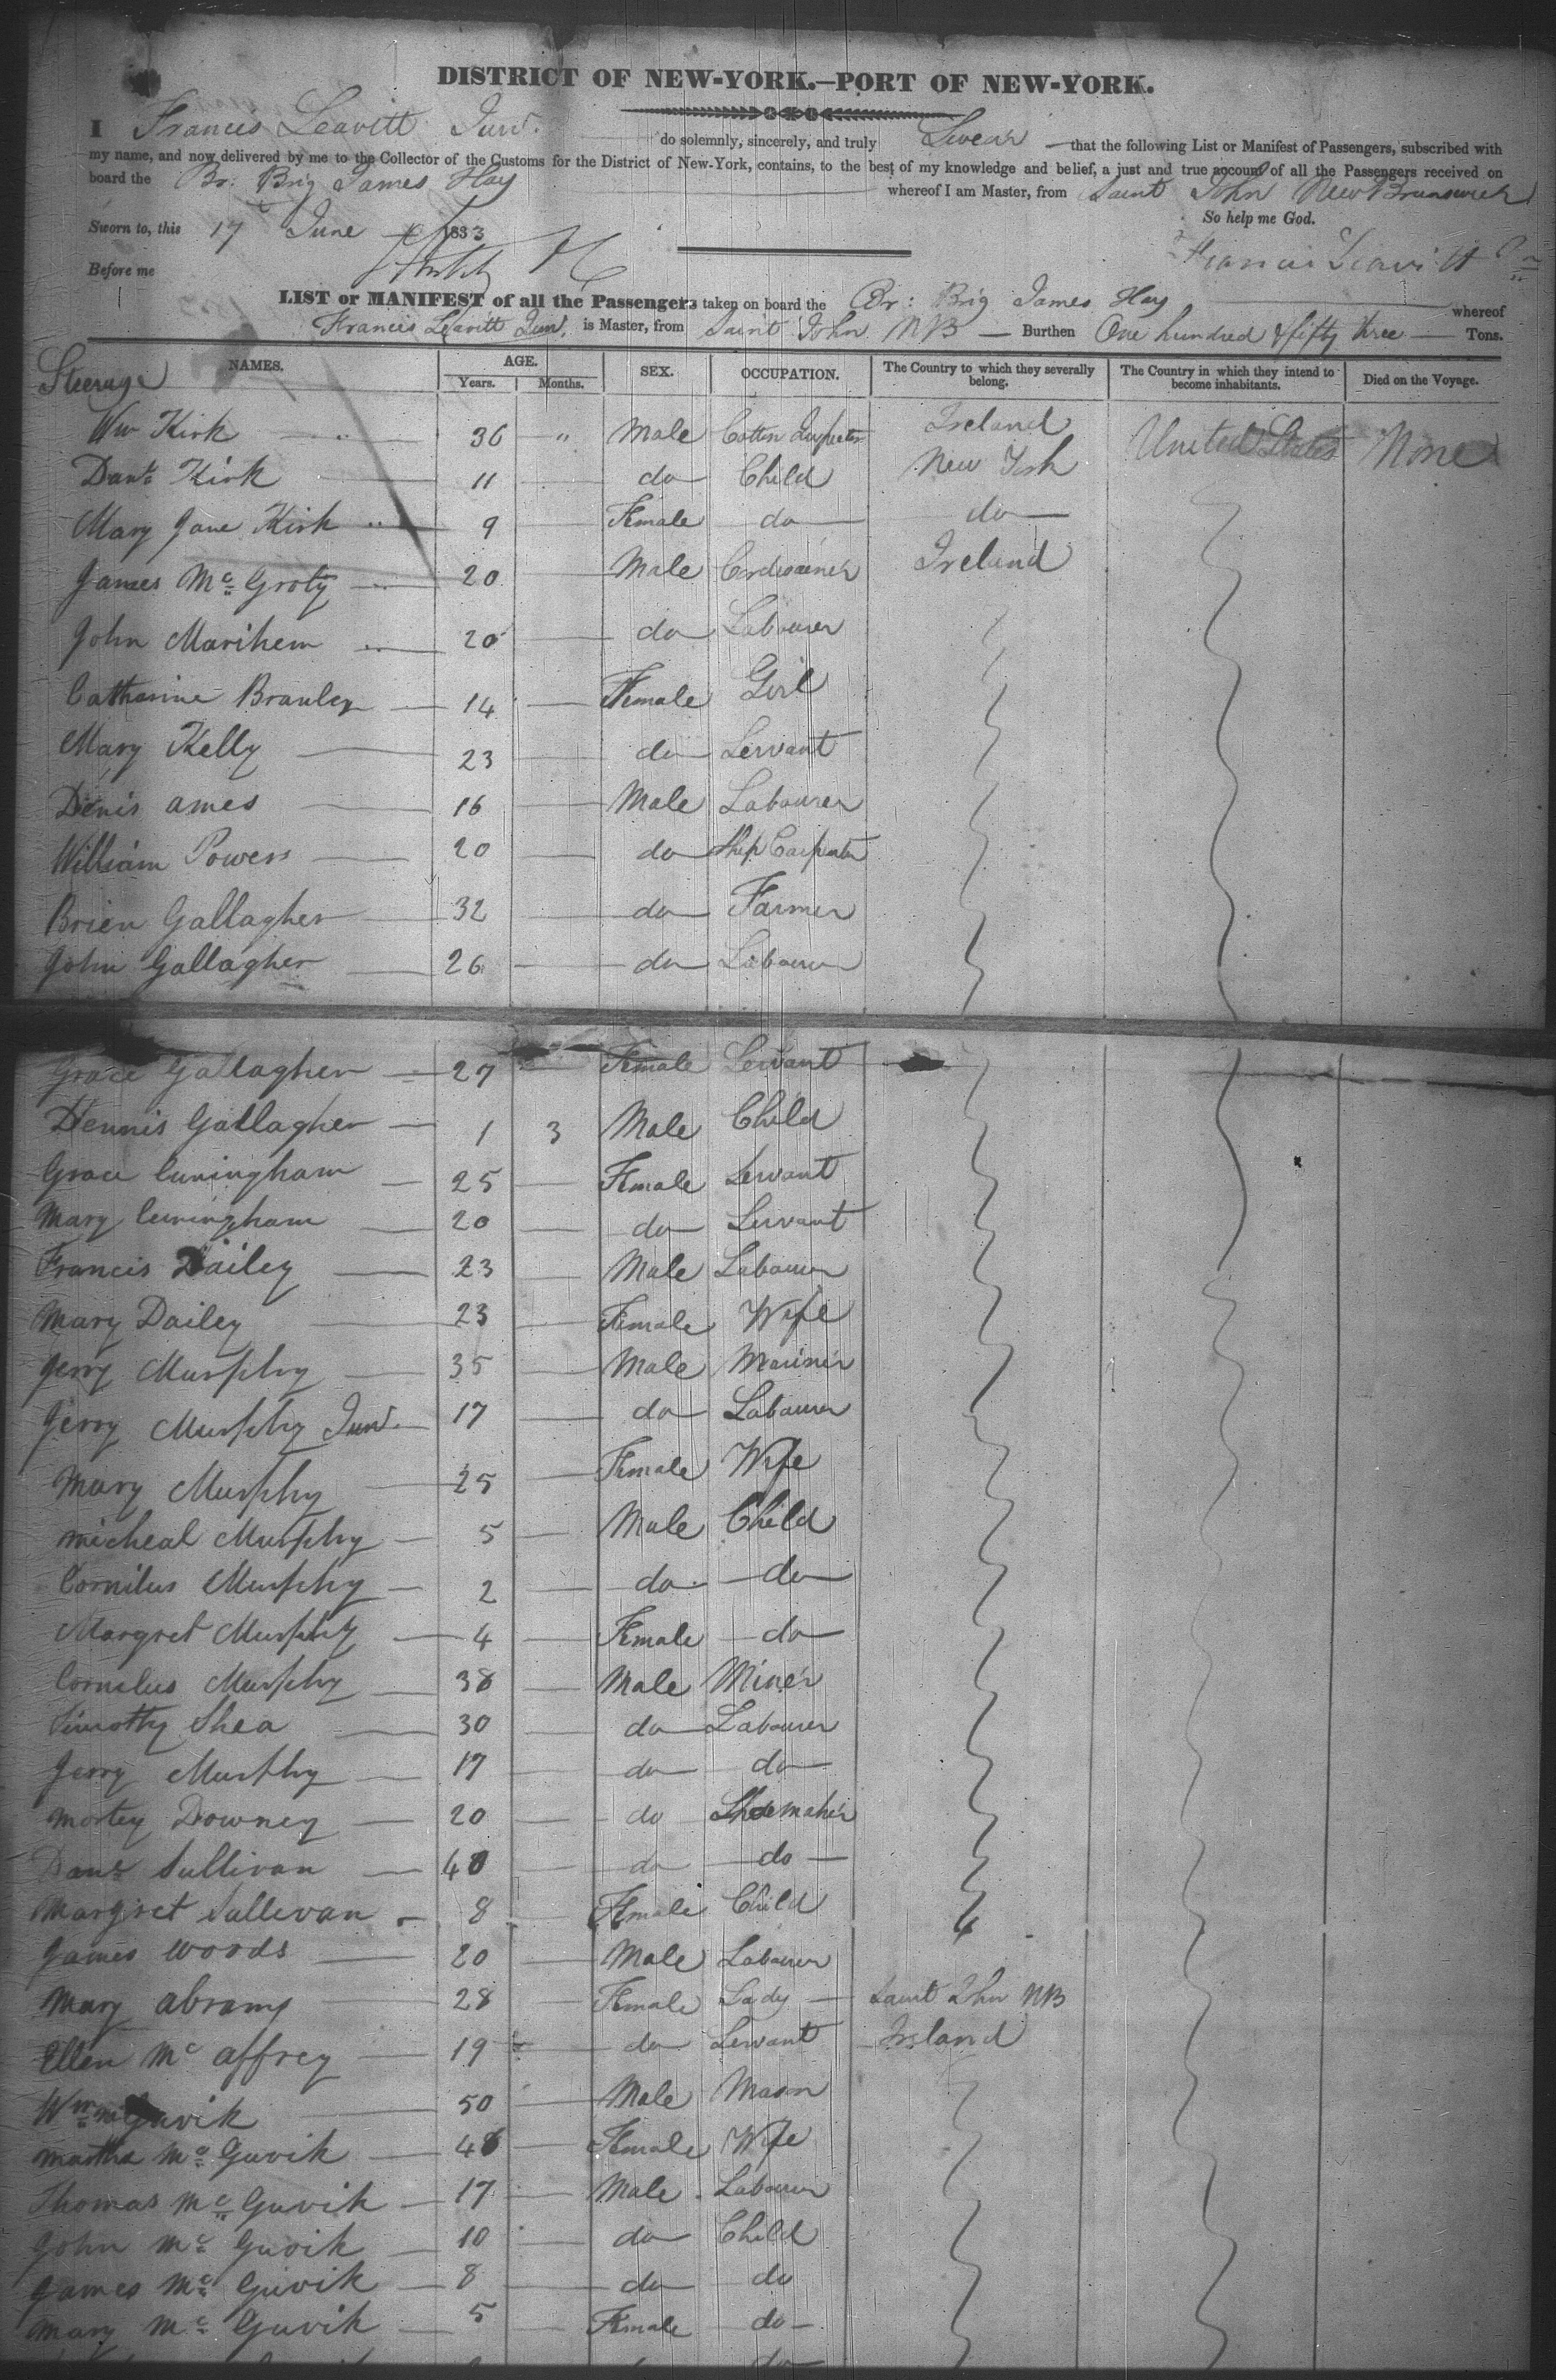 DISTRICT OF NEW-YORK.—PORT OF NEW-YORK.
I Francis Leavitt Junr. do solemnly, sincerely, and truly Swear that the following List or Manifest of Passengers, subscribed with
my name, and now delivered by me to the Collector of the Customs for the District of New-York, contains, to the best of my knowledge and belief, a just and true account of all the Passengers received on
board the Br: Brig James Hay whereof I am Master, from Saint John New Brunswick
So help me God.
Sworn to, this 17 June 1833
Francis Leavitt Jr
Before me
LIST or MANIFEST of all the Passengers taken on board the Br: Brig James Hay whereof
Francis Leavitt Junr. is Master, from Saint John NB — Burthen One hundred & fifty three — Tons.
Steerage NAMES. AGE. Years. Months. SEX. OCCUPATION. The Country to which they severally belong. The Country in which they intend to become inhabitants. Died on the Voyage.
Wm Kirk 36 " Male Cotton Ireland United States None
Danl. Kirk 11 do Child New York
Mary Jane Kirk 9 Female do do
James Mc Groty 20 Male Cordwainer Ireland
John Marihem 20 do Labourer
Catharine Branley 14 Female Girl
Mary Kelly 23 do Servant
Denis ames 16 Male Labourer
William Powers 20 do Ship Carpenter
Brien Gallagher 32 do Farmer
John Gallagher 26 do Labourer
Grace Gallagher 27 Female Servant
Dennis Gallagher 1 3 Male Child
Grace Cuningham 25 Female Servant
Mary Cuningham 20 do Servant
Francis Dailey 23 Male Labourer
Mary Dailey 23 Female Wife
Jerry Murphy 35 Male Mariner
Jerry Murphy Junr. 17 do Labourer
Mary Murphy 25 Female Wife
Micheal Murphy 5 Male Child
Cornilus Murphy 2 do do
Margret Murphy 4 Female do
Cornelus Murphy 38 Male Miner
Timothy Shea 30 do Labourer
Jerry Murphy 17 do do
Mortey Downey 20 do Shoemaker
Danl. Sullivan 40 do do
Margret Sullevan 8 Female Child
James Woods 20 Male Labourer
Mary abrams 28 Female Lady Saint John NB
Ellen Mc affrey 19 do Servant Ireland
Wm Mc Guvik 50 Male Mason
Martha Mc Guvik 46 Female Wife
Thomas Mc Guvik 17 Male Labourer
John Mc Guvik 10 do Child
James Mc Guvik 8 do do
Mary Mc Guvik 5 Female do
do